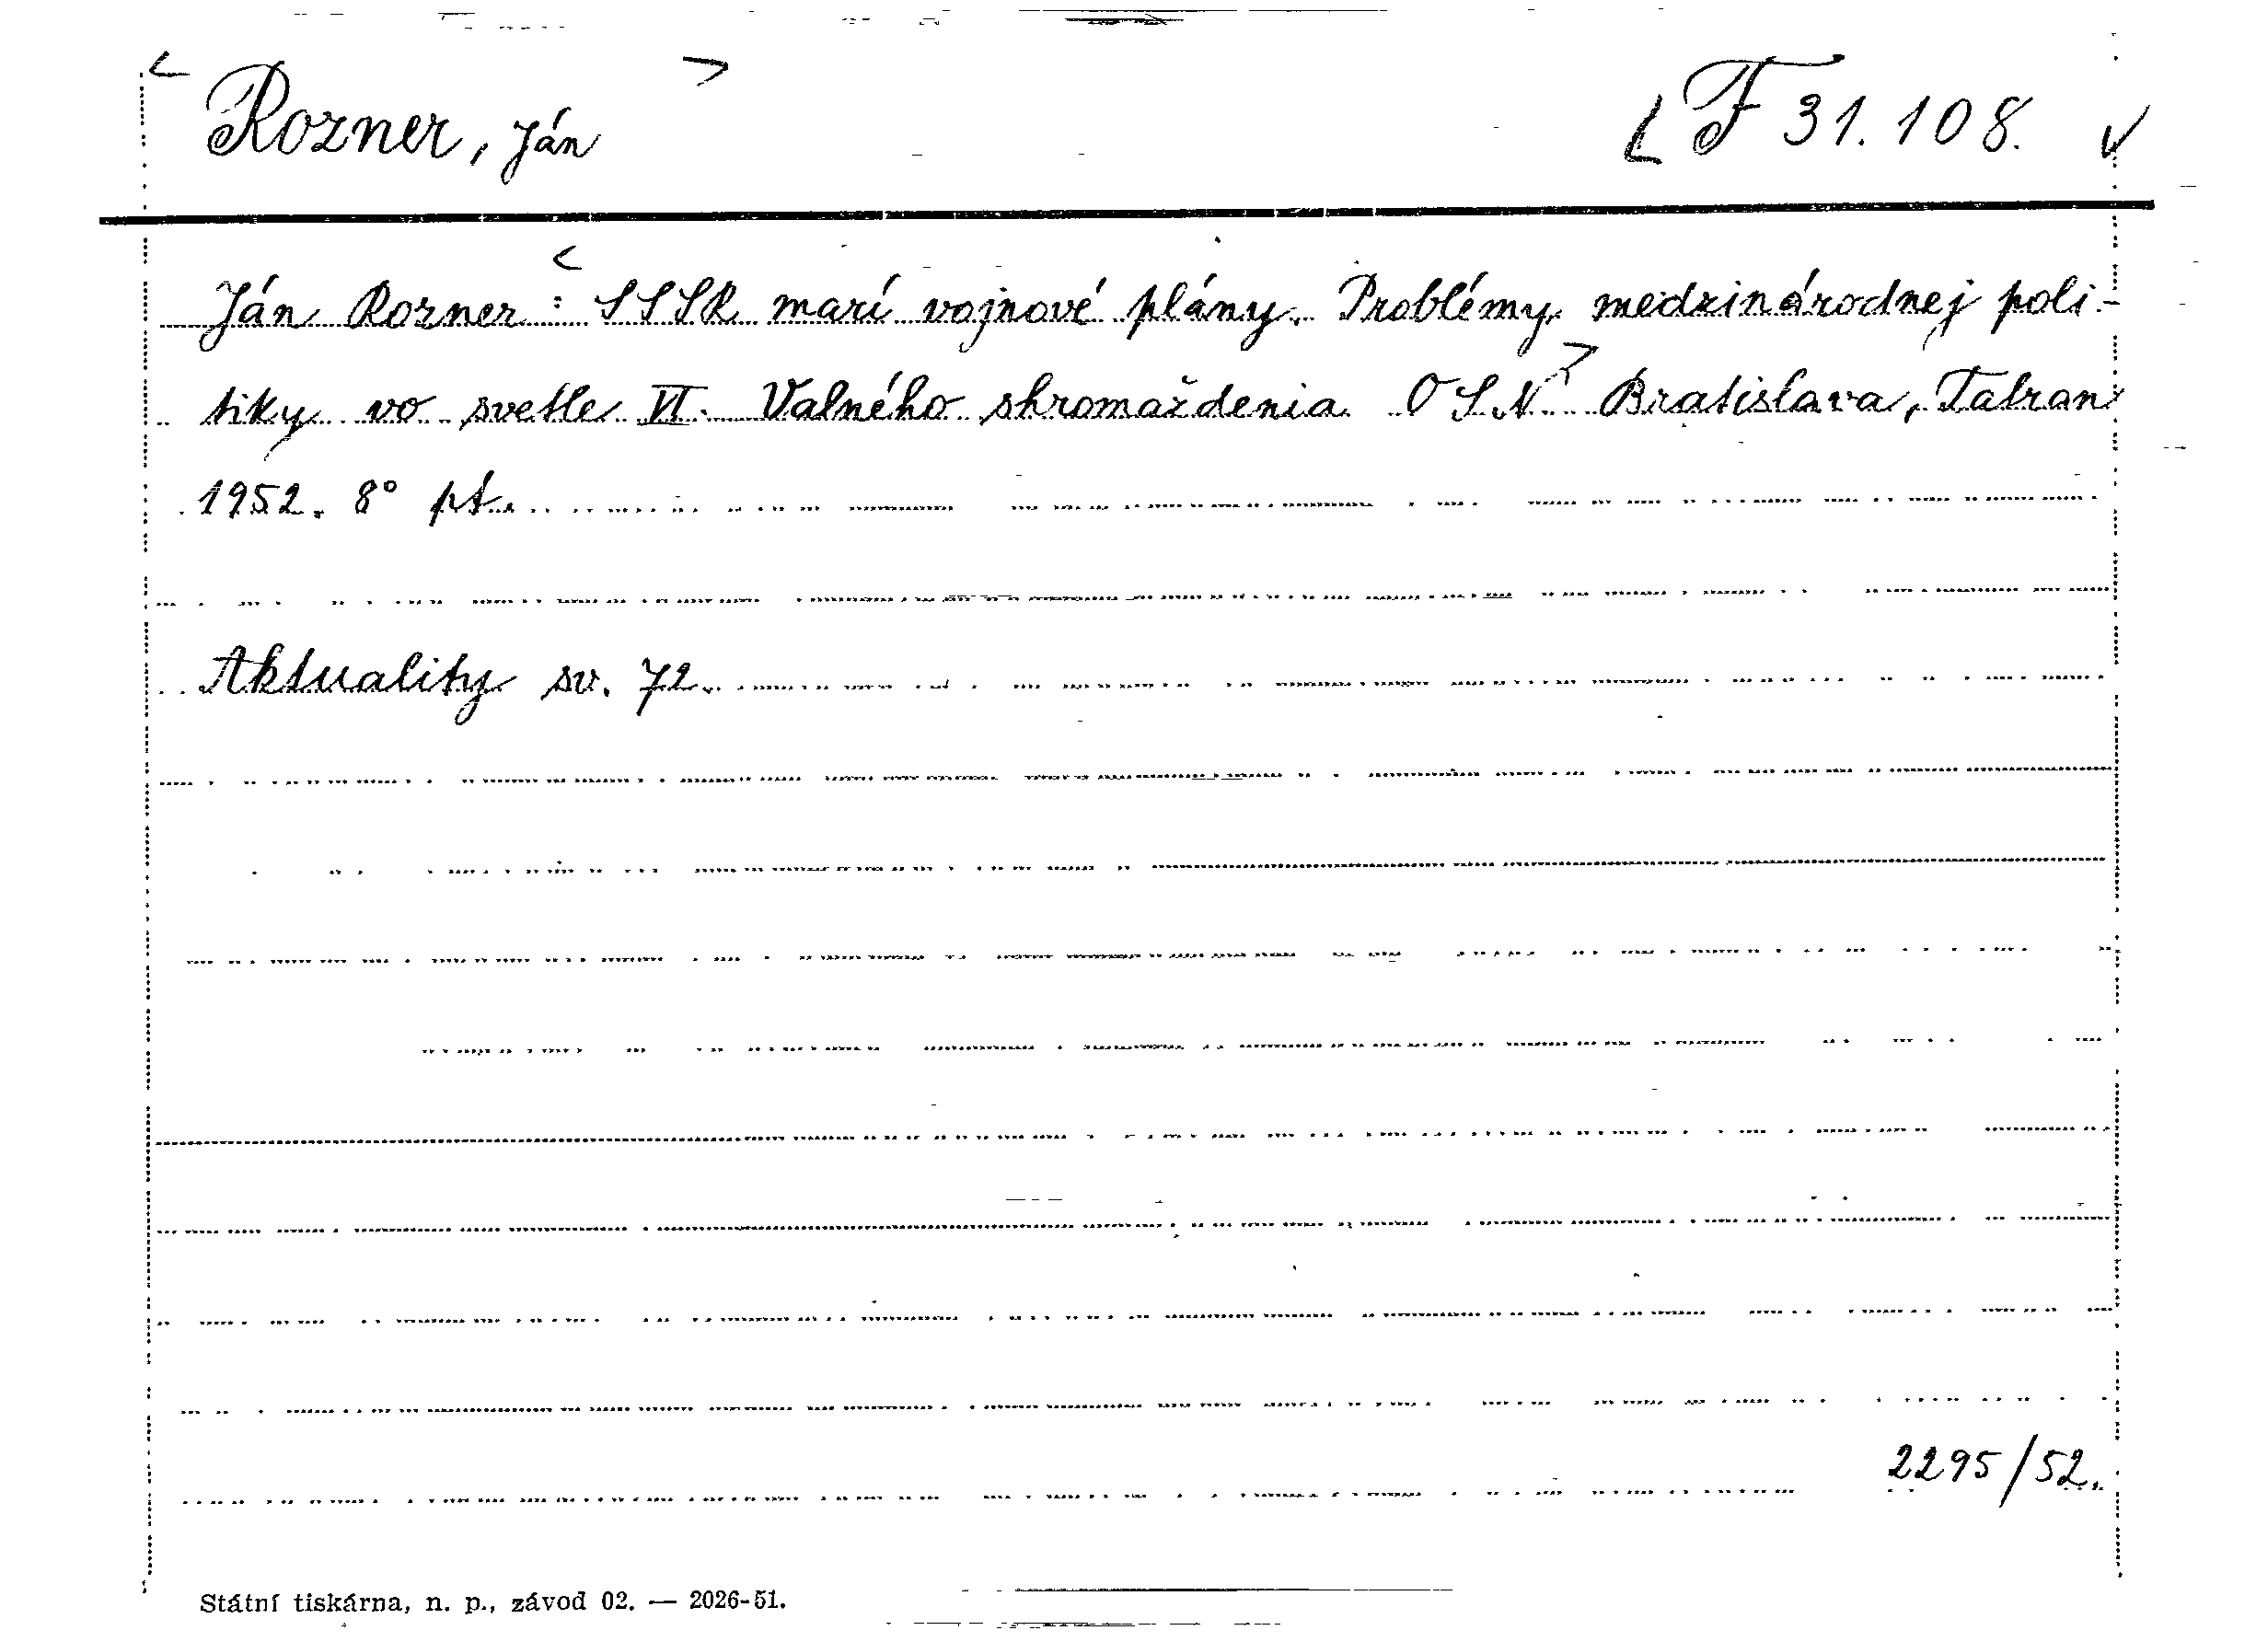 < Rozner, Ján > [F 31.108. ✓
Ján Rozner: <SSSR marí vojnové plány. Problémy medzinárodnej poli-
tiky vo svetle VI. Valného shromaždenia OSN> Bratislava, Tatran
1952. 8° pt.
Aktuality sv. 72.
2295/52.
Státní tiskárna, n. p., závod 02. — 2026-51.